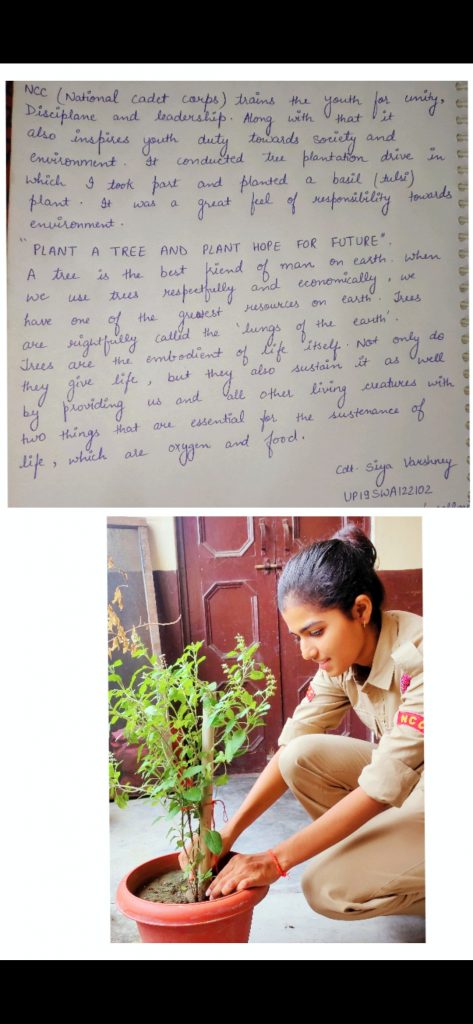 NCC (National cadet corps) trains the youth for unity,
Disciplane and leadership. Along with that it
also inspires youth duty towards society and
environment. It conducted tree plantation drive in
which I took part and planted a basil (tulsi)
plant. It was a great feel of responsibility towards
environment.
"PLANT A TREE AND PLANT HOPE FOR FUTURE".
A tree is the best friend of man on earth. When
we use trees respectfully and economically, we
have one of the greatest resources on earth. Trees
are rightfully called the 'lungs of the earth'.
Trees are the embodient of life itself. Not only do
they give life, but they also sustain it as well
by providing us and all other living creatures with
two things that are essential for the sustenance of
life, which are oxygen and food.
Cdt. Siya Varshney
UP19SWA122102
NCC